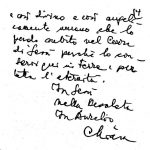 così divino e così angeli
camente umano che lo
perdo subito nel Cuore
di Gesù perché lo con
servi qui in terra e per
tutta l'eternità.
In Gesù
nella Desolata
In Aurelio
Chiara